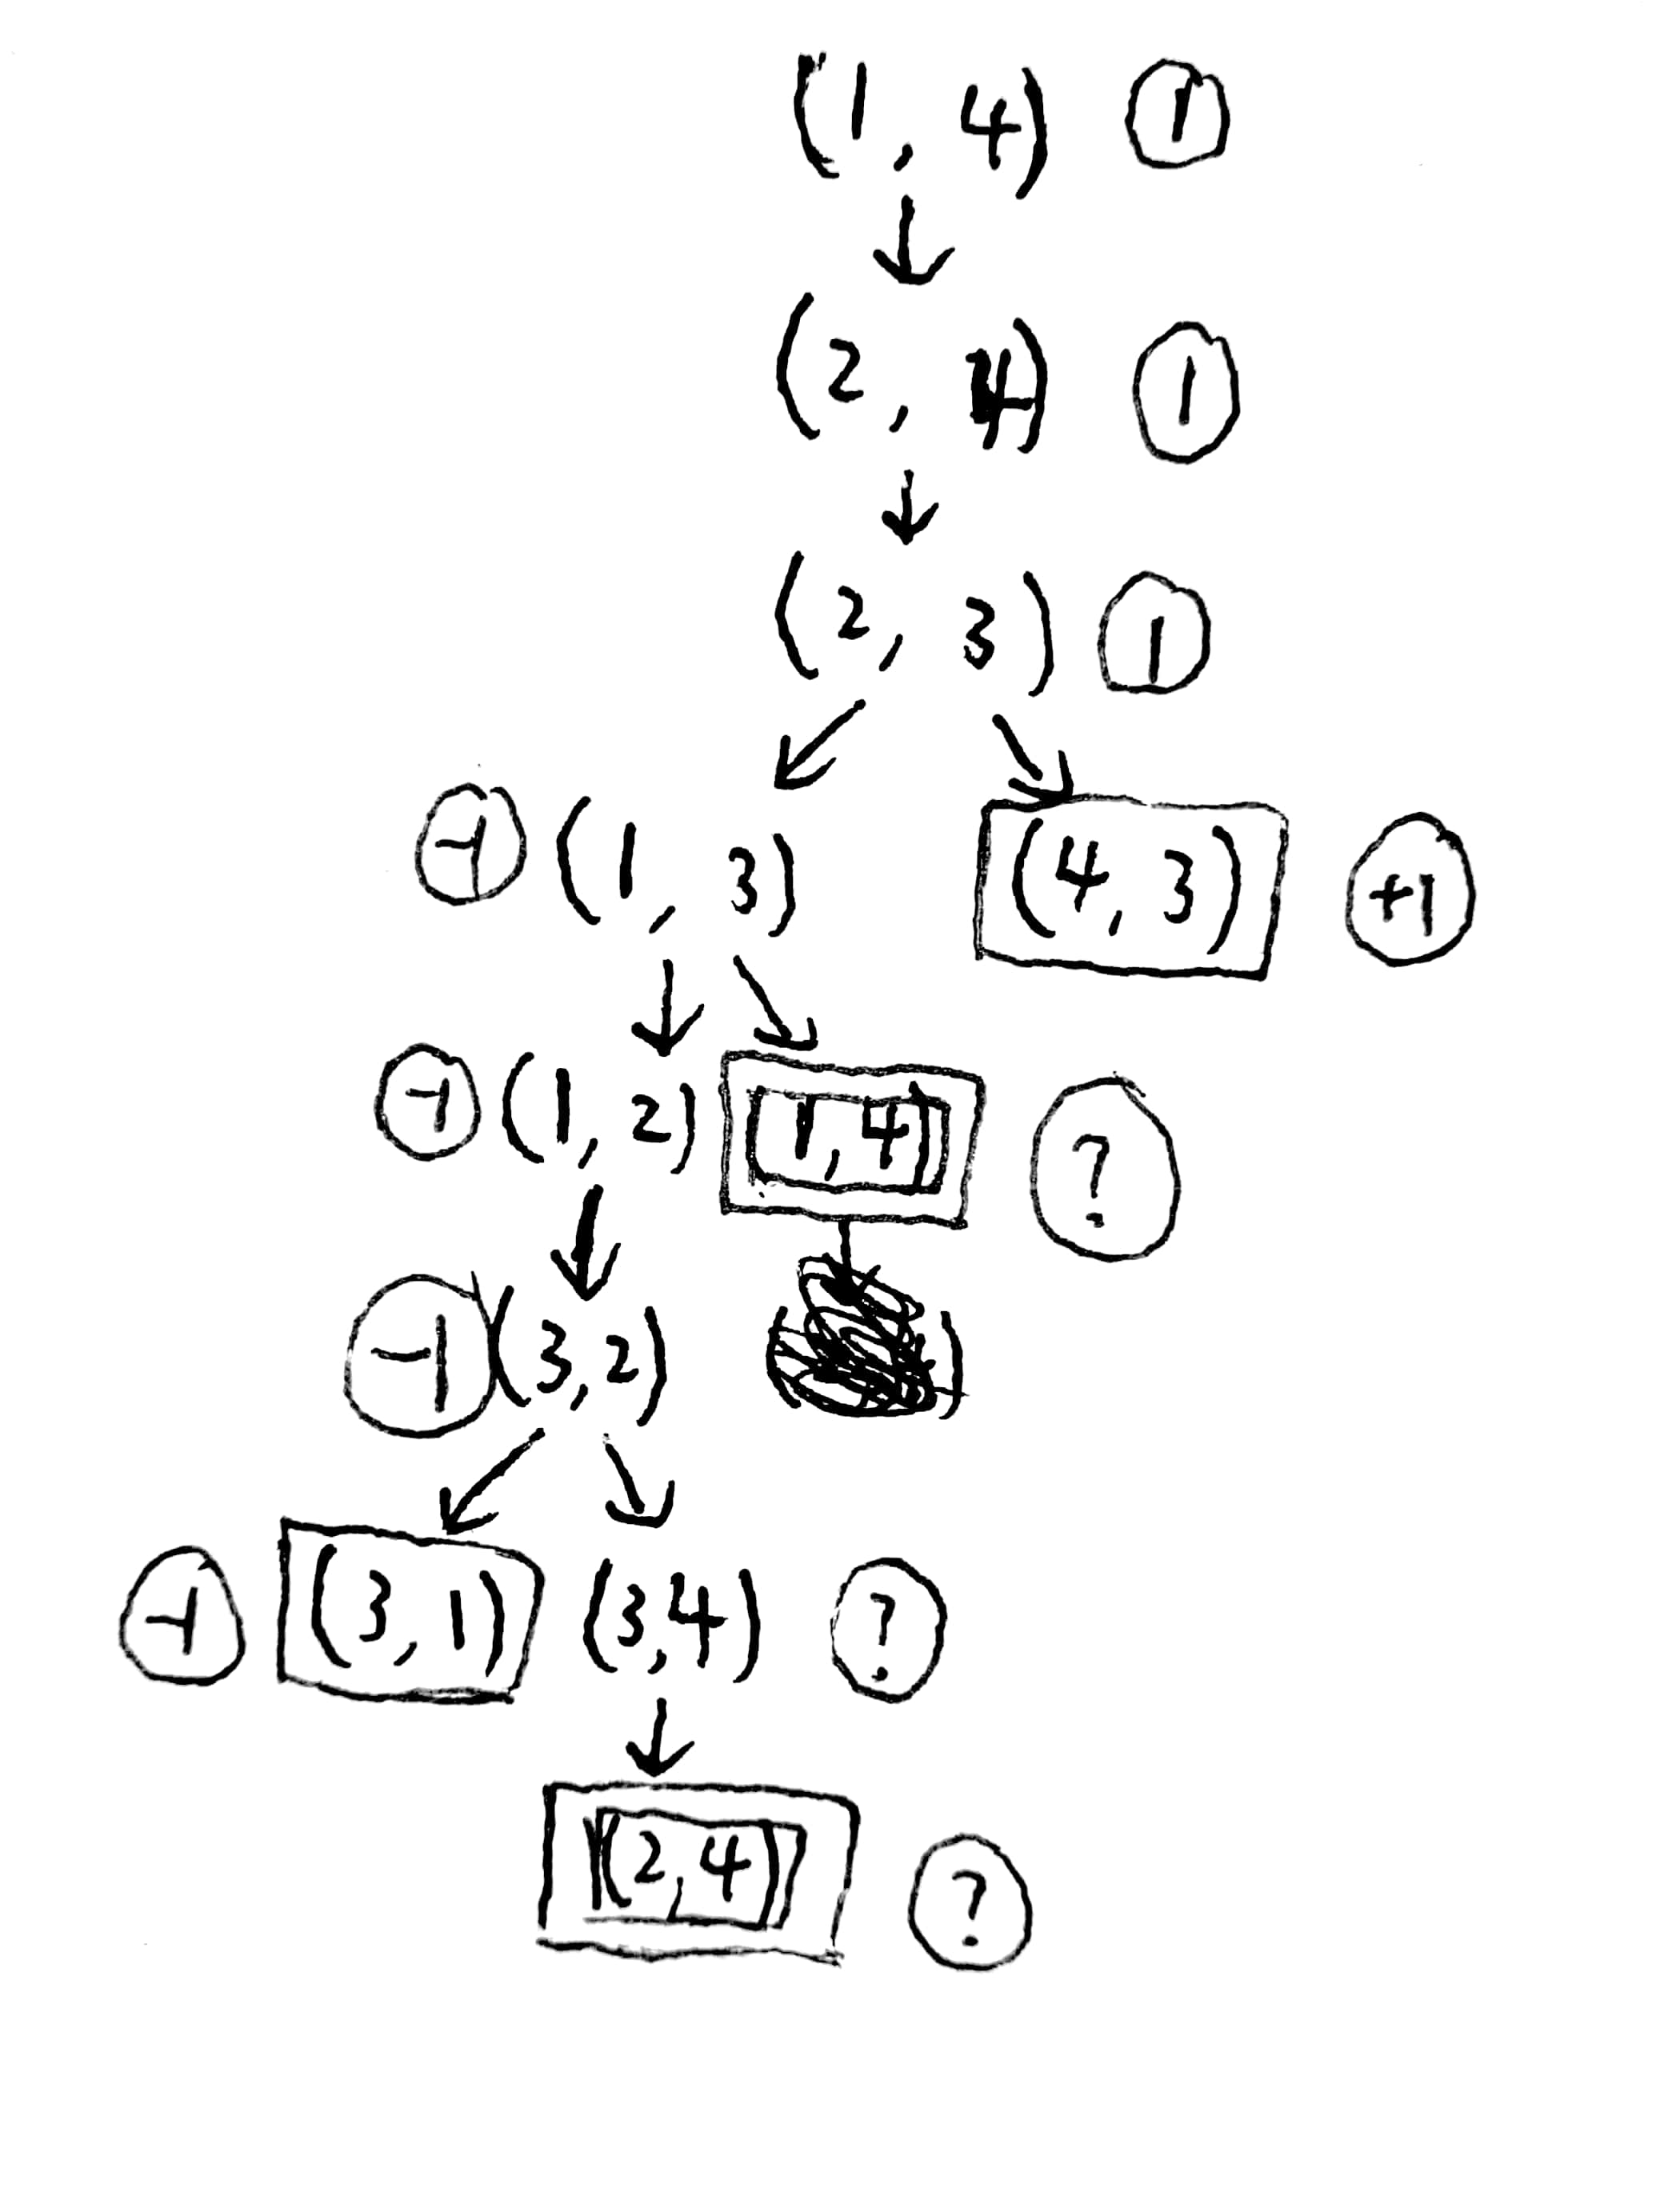 (1, 4) 1
(2, 4) 1
(2, 3) 1
-1 (1, 3) (4, 3) +1
-1 (1, 2) (1, 4) ?
-1 (3, 2)
-1 (3, 1) (3, 4) ?
(2, 4) ?